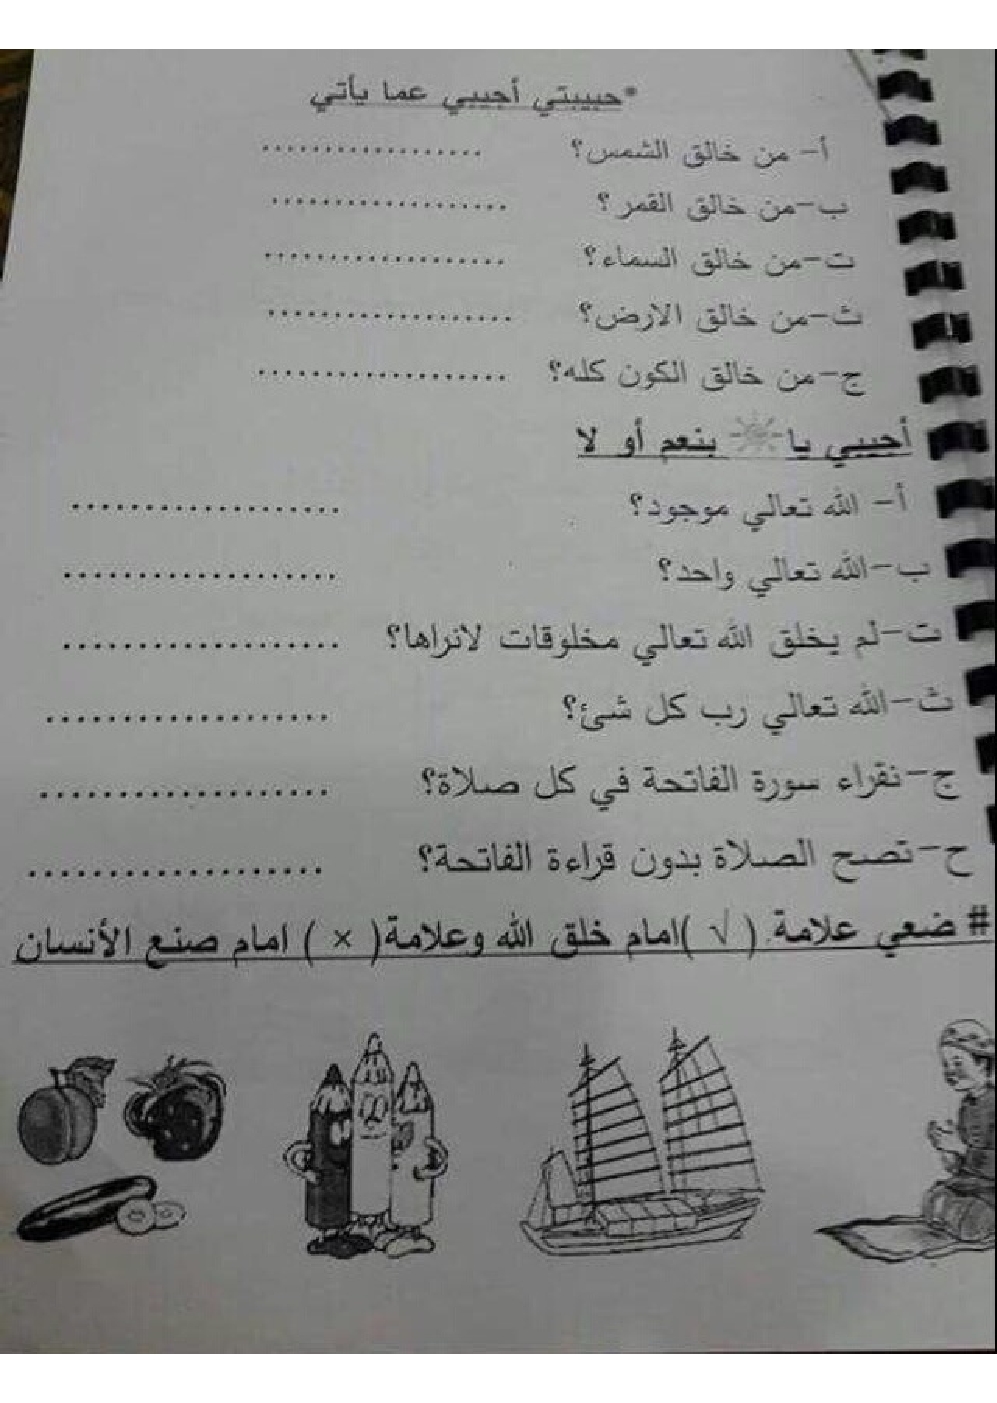 *حبيبتي أجيبي عما يأتي
أ- من خالق الشمس؟ ...................
ب-من خالق القمر؟ ...................
ت-من خالق السماء؟ ...................
ث-من خالق الارض؟ ...................
ج-من خالق الكون كله؟ ...................
أجيبي يا بنعم أو لا
أ- الله تعالي موجود؟ ...................
ب-الله تعالي واحد؟ ...................
ت-لم يخلق الله تعالي مخلوقات لانراها؟ ...................
ث-الله تعالي رب كل شئ؟ ...................
ج-نقراء سورة الفاتحة في كل صلاة؟ ...................
ح-تصح الصلاة بدون قراءة الفاتحة؟ ...................
# ضعي علامة ( √ )امام خلق الله وعلامة( × ) امام صنع الأنسان